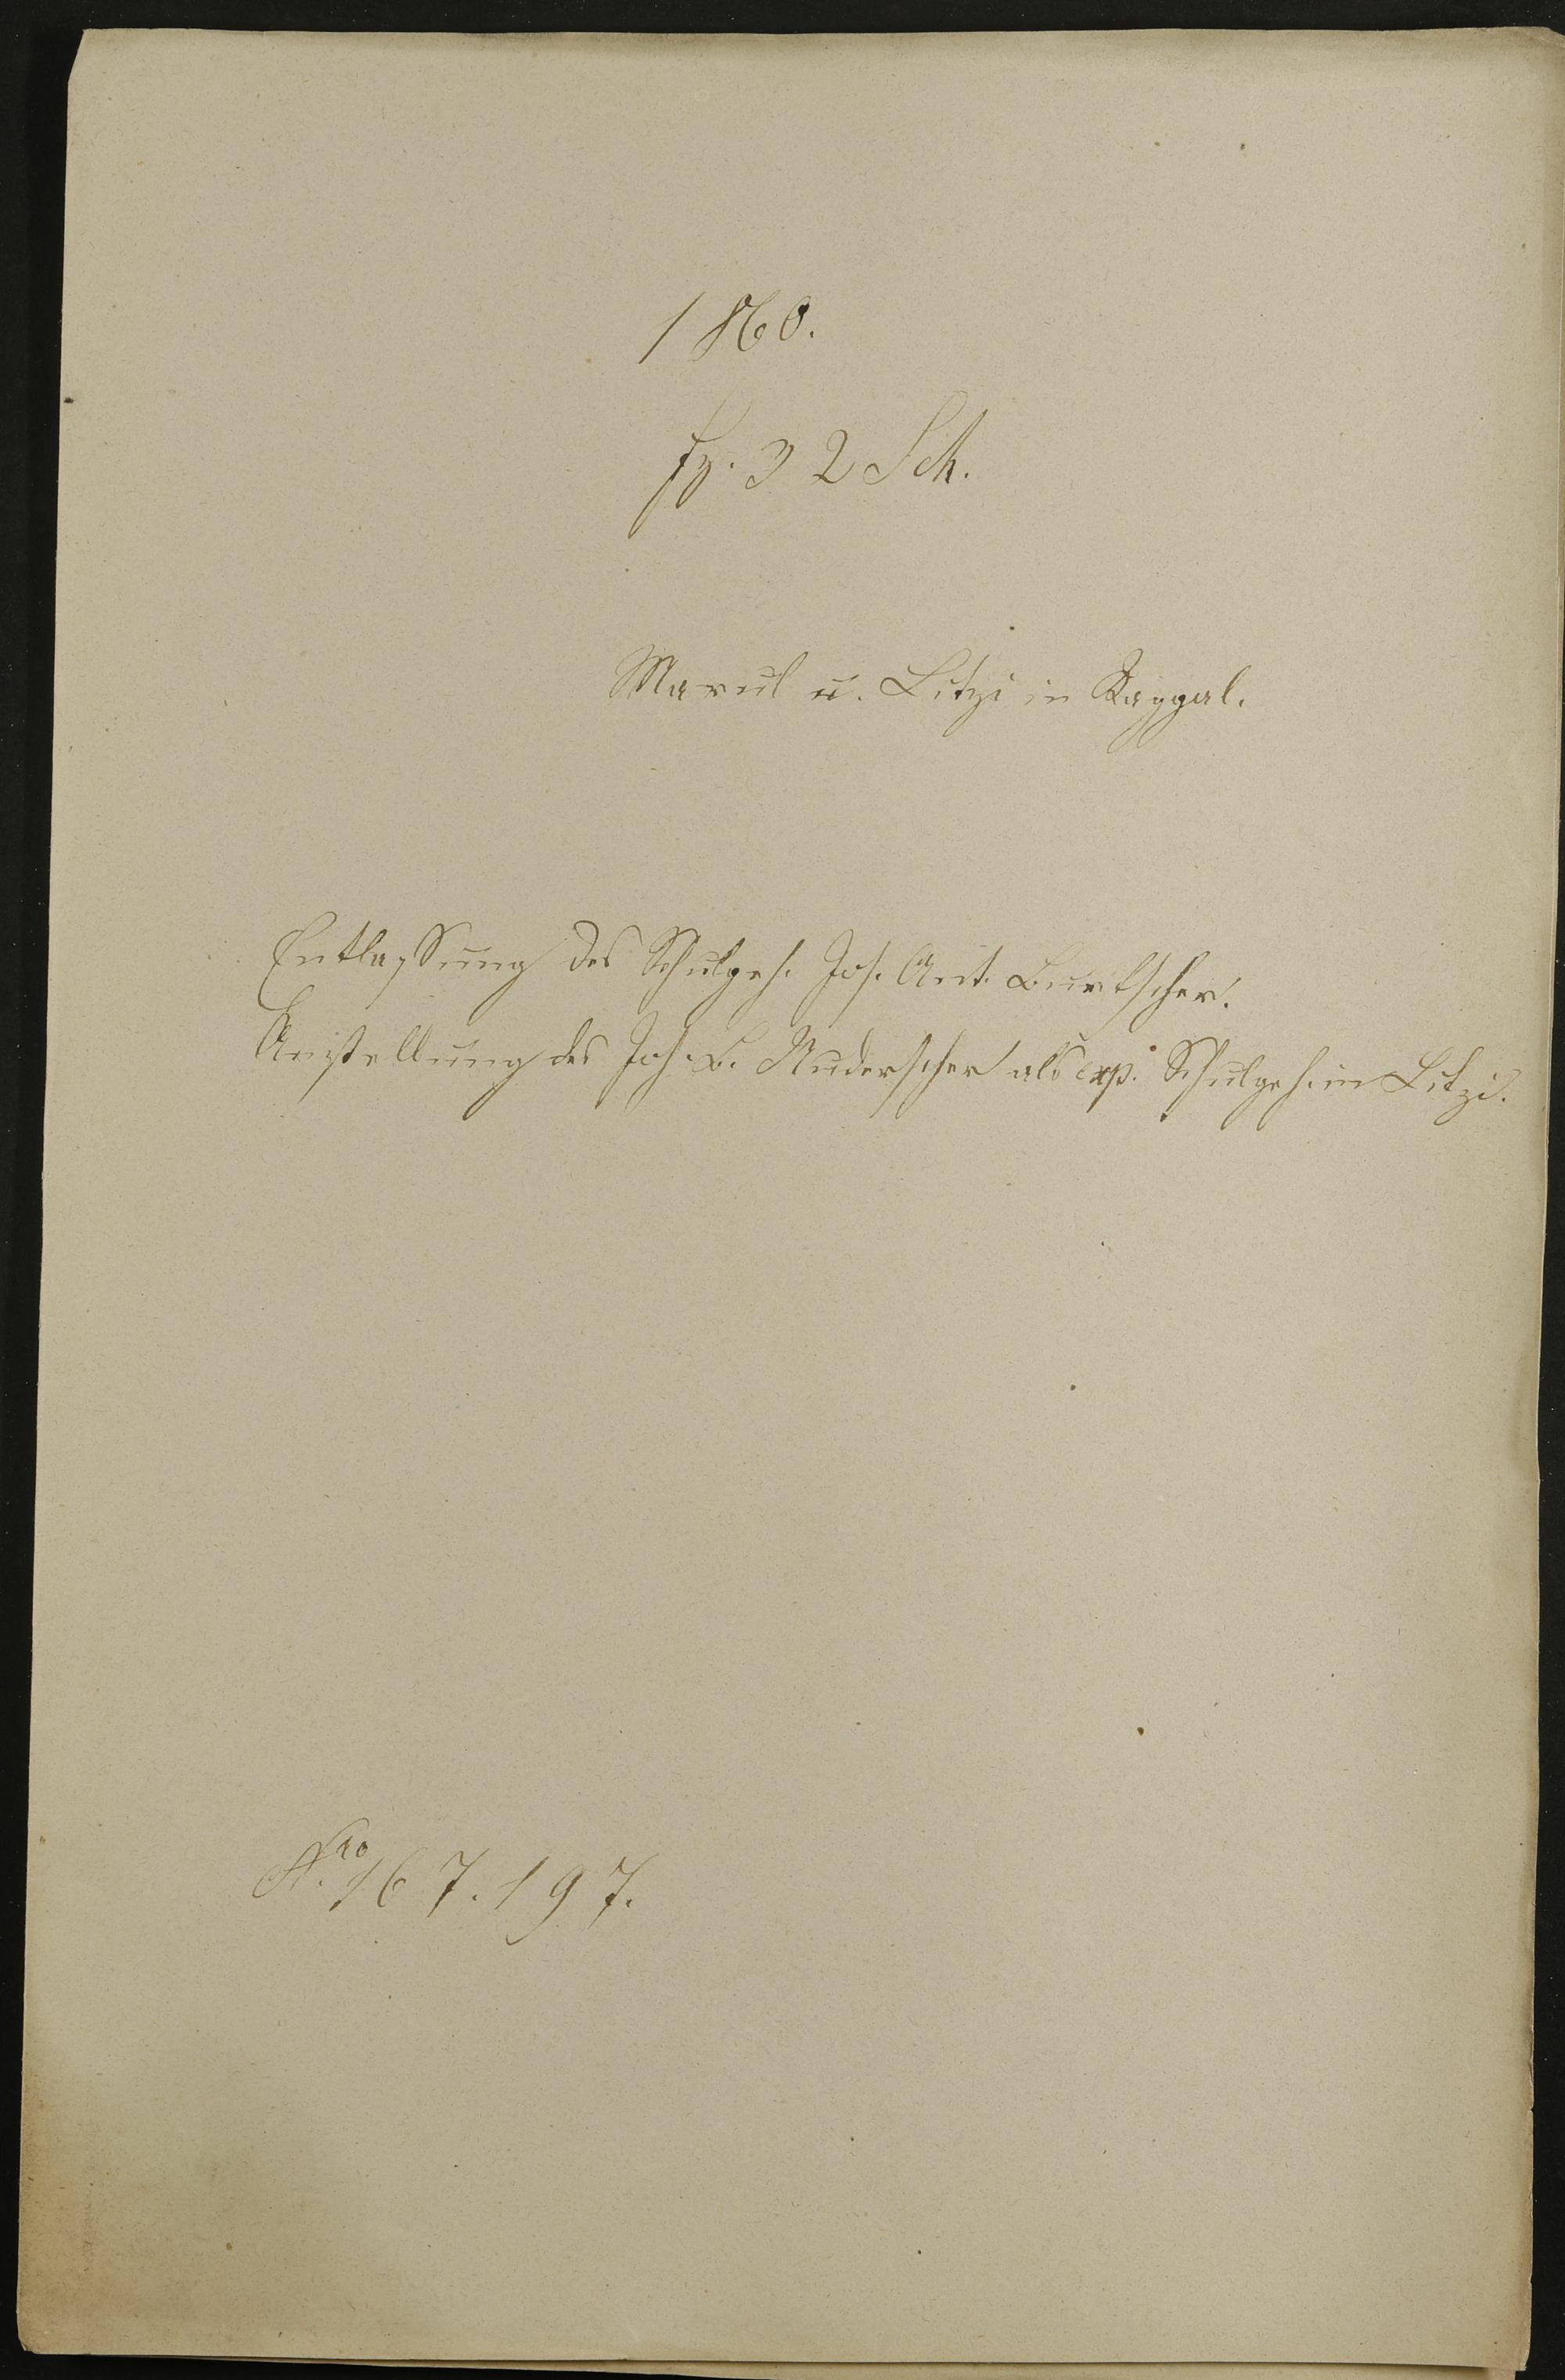 1860.
fz. 32 Sch.
Marul u. Litzi in Raggal.
Entlassung des Schulgeh. Jos. Ant. Burtscher.
Anstellung des Joh. B. Muderscher als exp. Schulgeh. in Litzi.
Nro 167. 197.